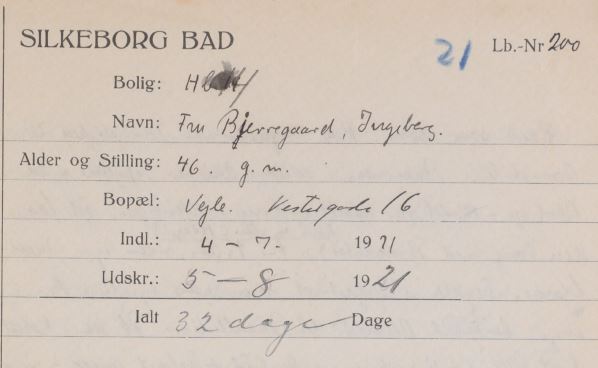 SILKEBORG BAD 21 Lb.-Nr 200
Bolig:
Navn: Fru Bjerregaard, Ingeborg.
Alder og Stilling: 46. g.m.
Bopæl: Vejle. Vestergade 16
Indl.: 4 - 7. 1921
Udskr.: 5 - 8 1921
Ialt 32 dage Dage